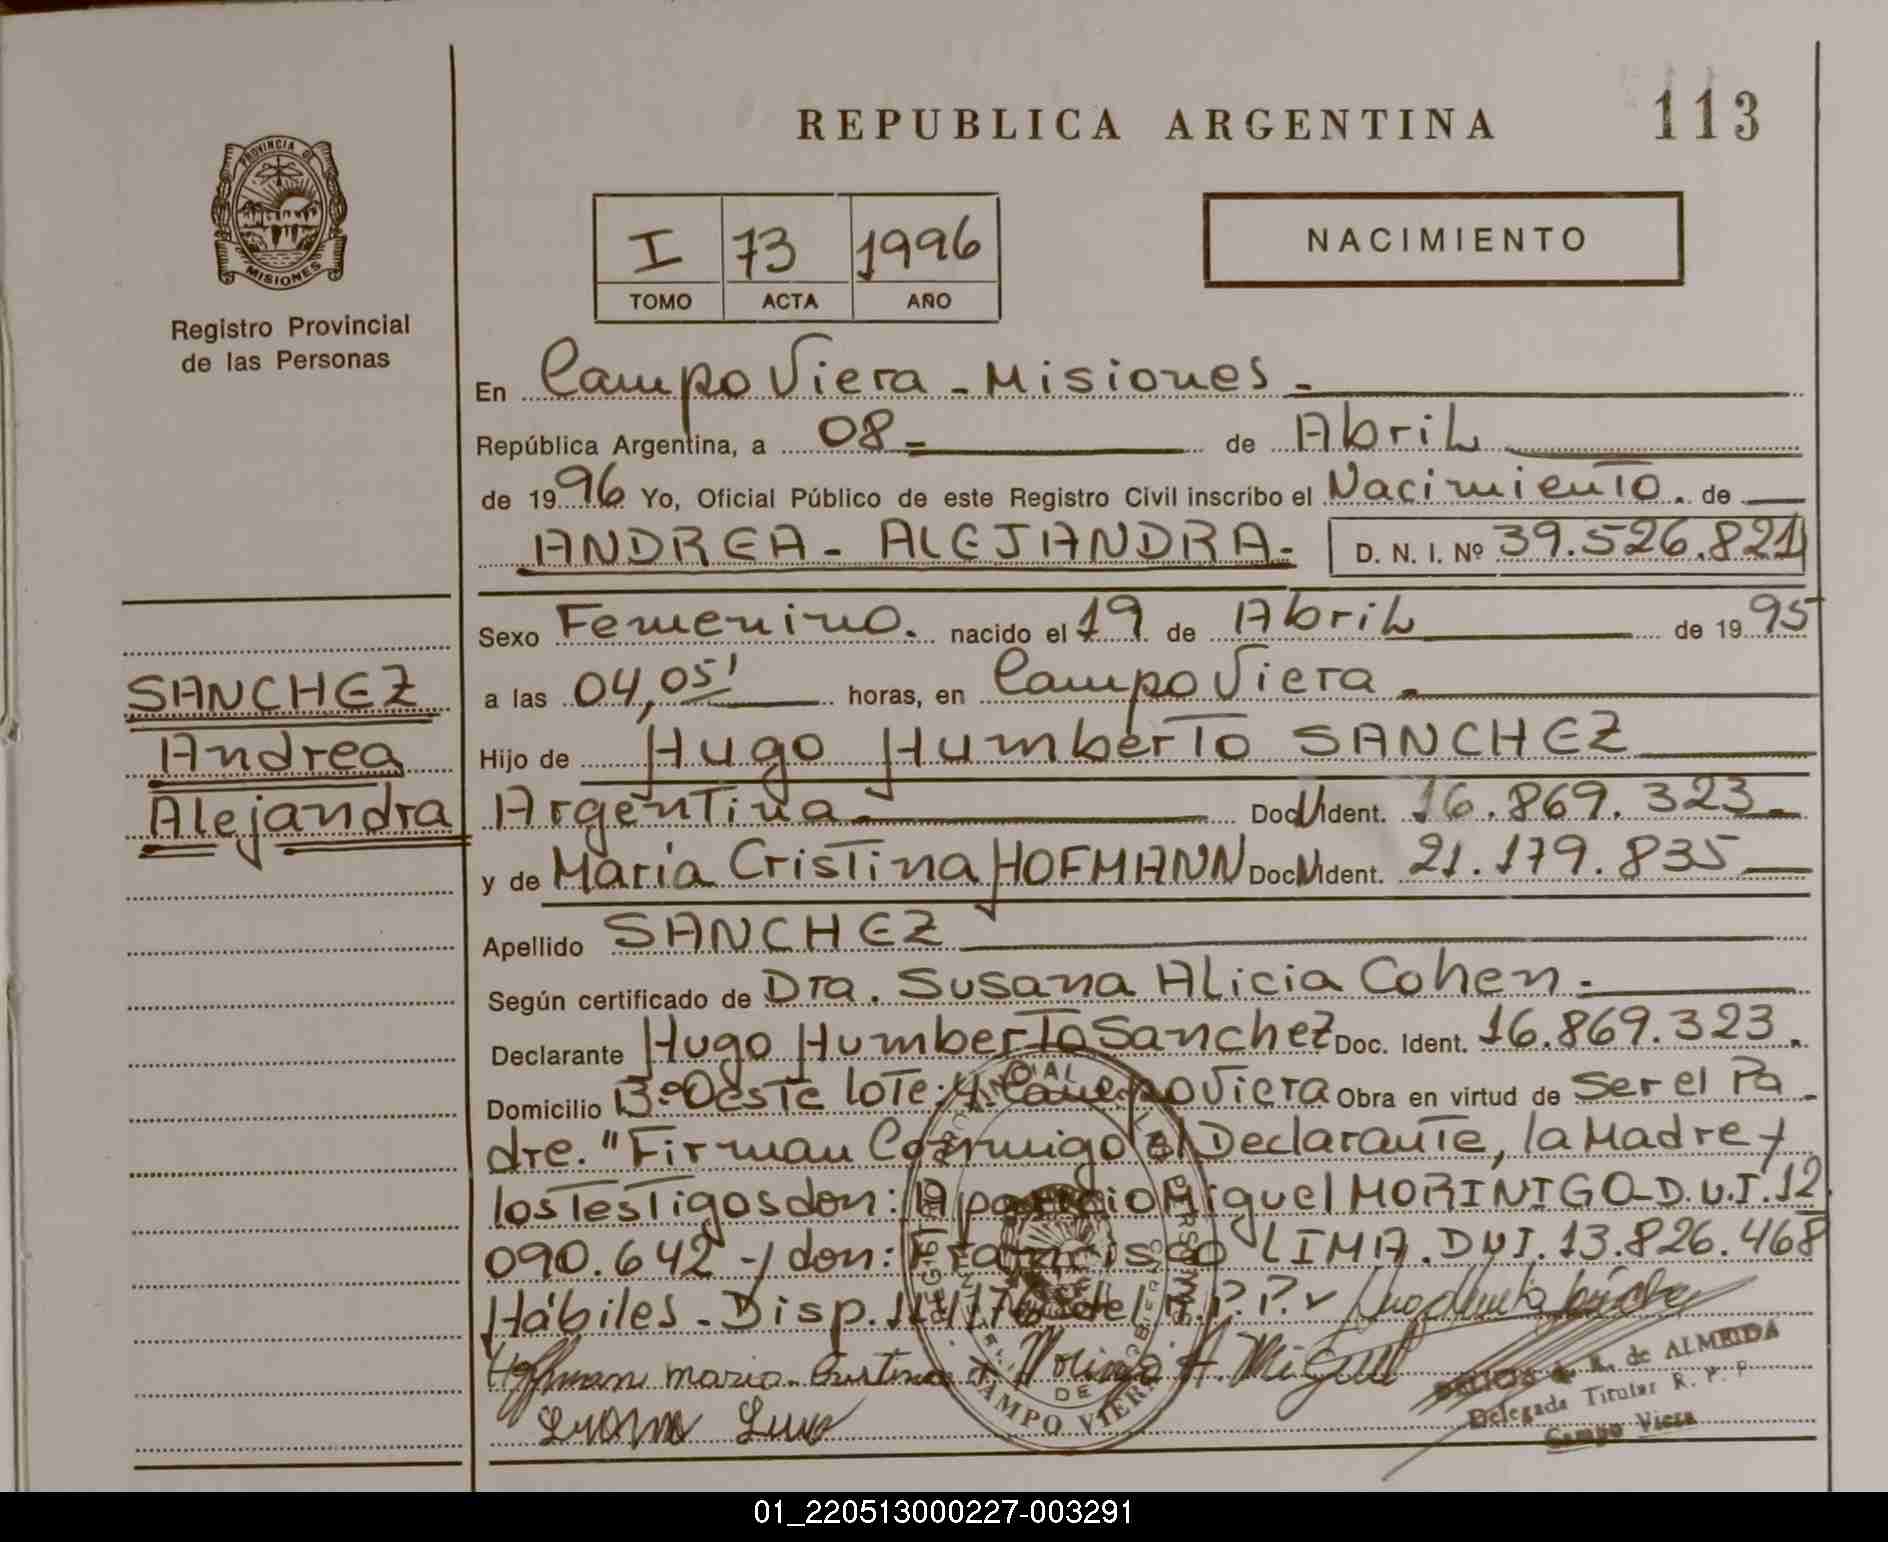 REPUBLICA ARGENTINA
113
PROVINCIA DE
MISIONES
Registro Provincial
de las Personas
I 73 1996
TOMO ACTA AÑO
NACIMIENTO
En Campo Viera - Misiones -
República Argentina, a 08 - de Abril
de 1996 Yo, Oficial Público de este Registro Civil inscribo el Nacimiento. de
ANDREA - ALEJANDRA - D. N. I. Nº 39.526.821
Sexo Femenino. nacido el 19 de Abril de 1995
a las 04,05' horas, en Campo Viera -
Hijo de Hugo Humberto SANCHEZ
Argentina - Doc. Ident. 16.869.323 -
y de María Cristina HOFMANN Doc. Ident. 21.179.835
Apellido SANCHEZ
Según certificado de Dra. Susana Alicia Cohen -
Declarante Hugo Humberto Sanchez Doc. Ident. 16.869.323.
Domicilio B:º Oeste Lote: 4. Campo Viera Obra en virtud de Ser el Pa
dre. "Firman Conmigo el Declarante, la Madre y
los Testigos don: Aparicio Miguel MORINIGO - D.N.I. 12
090.642 - y don: Francisco LIMA. DNI. 13.826.468
Hábiles - Disp. del R.P.P.
SANCHEZ
Andrea
Alejandra
Hoffman maria Cristina Morinigo A. Miguel
de ALMEIDA
Delegada Titular R. P. P.
Campo Viera
CAMPO VIERA
01_220513000227-003291